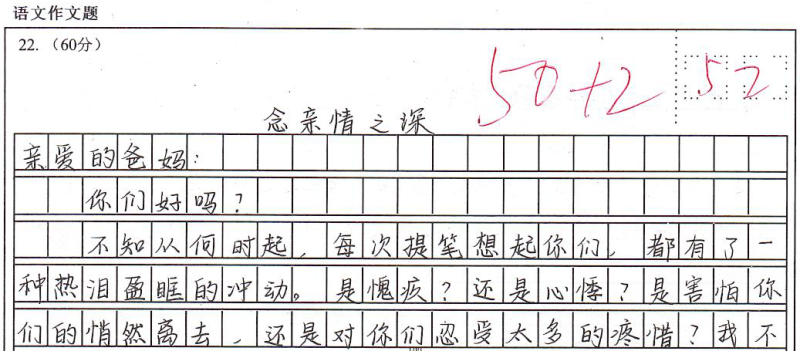 语文作文题
22. （60分）
50+2 52
念亲情之深
亲爱的爸妈：
你们好吗？
不知从何时起，每次提笔想起你们，都有了一
种热泪盈眶的冲动。是愧疚？还是心悸？是害怕你
们的悄然离去，还是对你们忍受太多的疼惜？我不